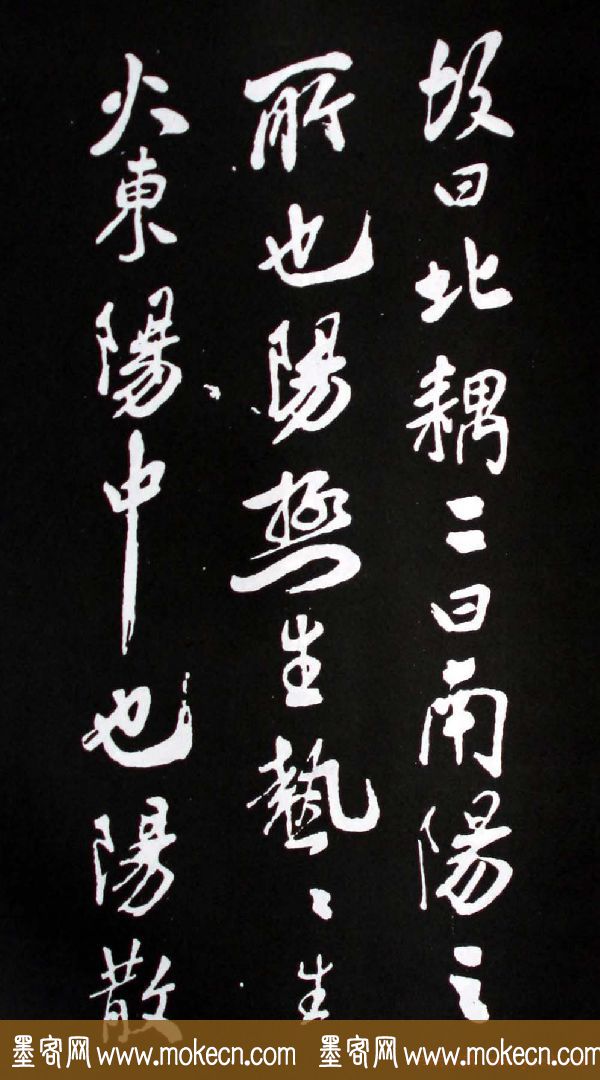 故曰北耦二曰南陽之
所也陽極生熱〻生
火東陽中也陽散
墨客网 www.mokecn.com 墨客网 www.mokecn.com